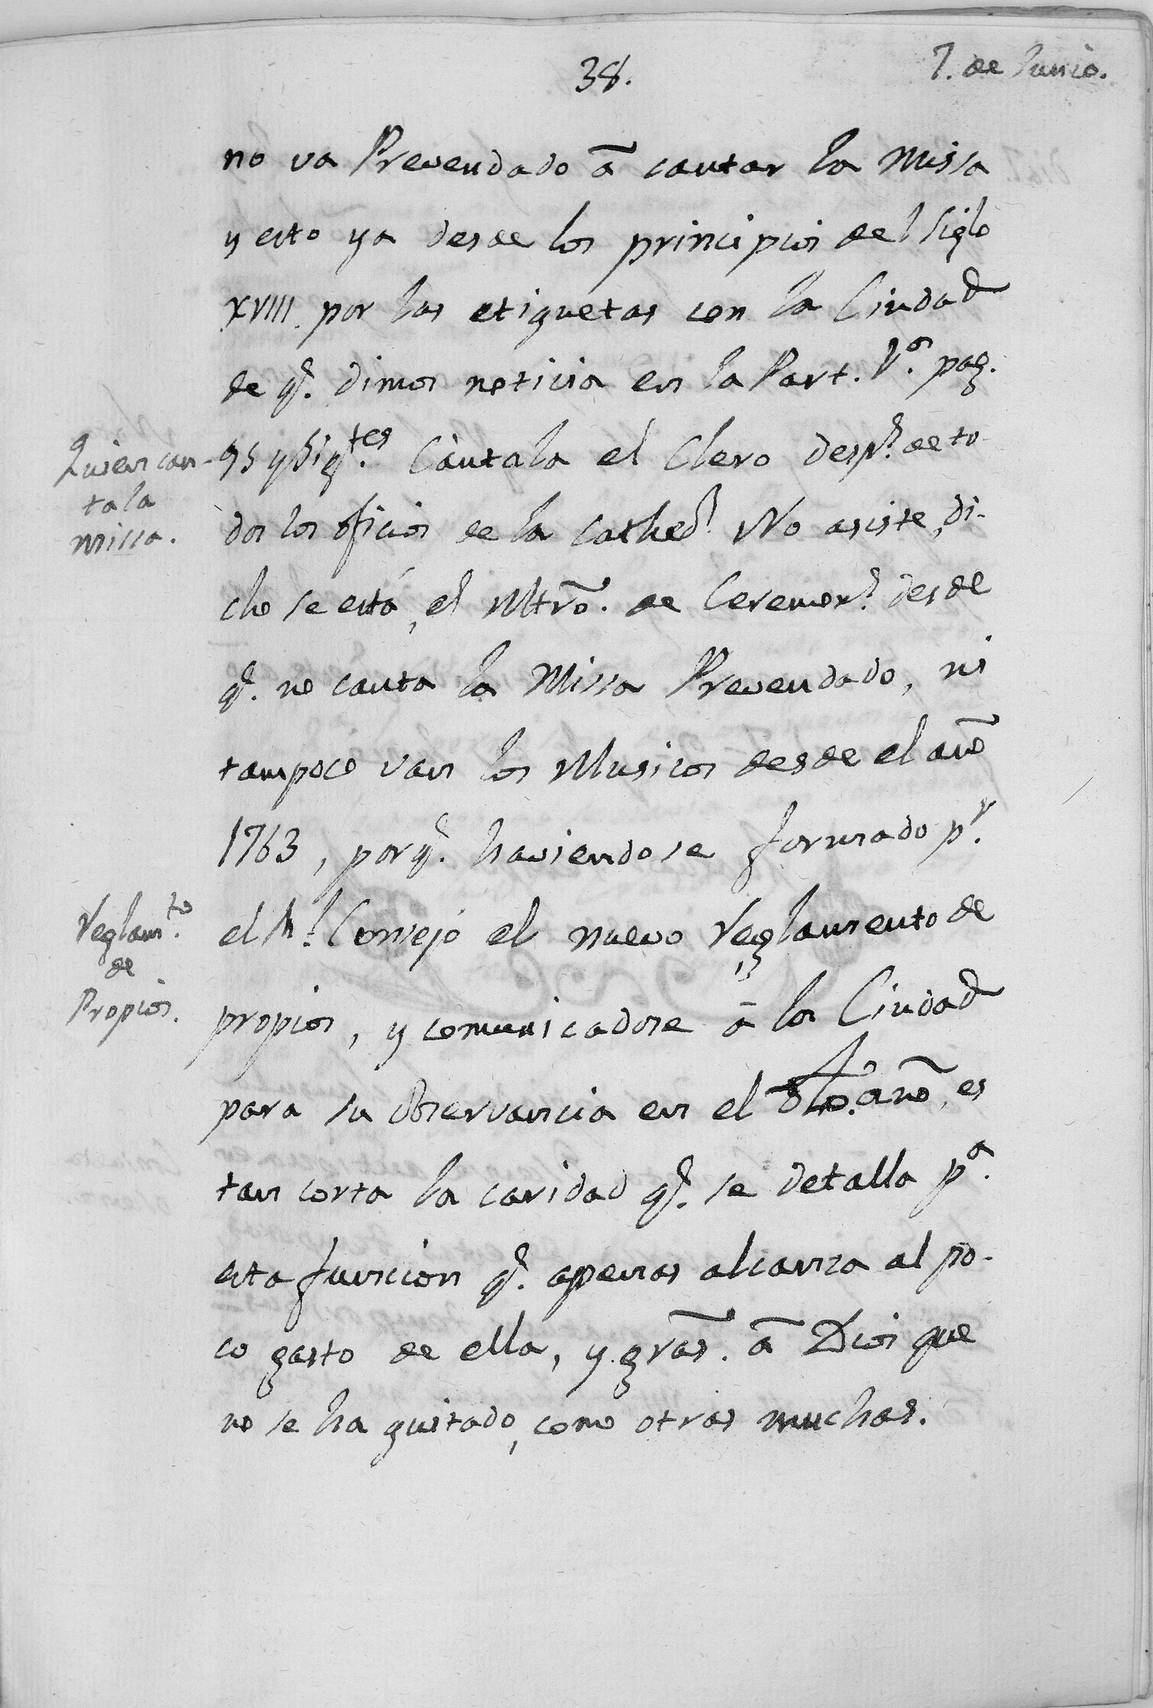 38.
7. de Junio.
no va Prevendado â cantar la Missa
y esto ya desde los principios del Siglo
XVIII. por las etiquetas con la Ciudad
de q.^e dimos noticia en la Part. V.^a pag.
Quien can-
ta la
missa.
95 y Sig.^tes Càntala el Clero desp.^s de to-
dos los oficios de la Cathed.^l No asiste, di-
cho se està, el Mtrō. de Ceremon.^s desde
q.^e no canta la Missa Prevendado, ni
tampoco van los Musicos desde el anõ
1763, porq.^e haviendose formado p.^r
Reglam.^to
de
Propios.
el R.^l Consejo el nuevo Reglamento de
propios, y comunicadose â la Ciudad
para su observancia en el dho. anõ, es
tan corta la caridad q.^e se detalla p.^a
esta funcion q.^e apenas alcanza al po-
co gasto de ella, y grãs. â Dios que
no se ha quitado, como otras muchas.